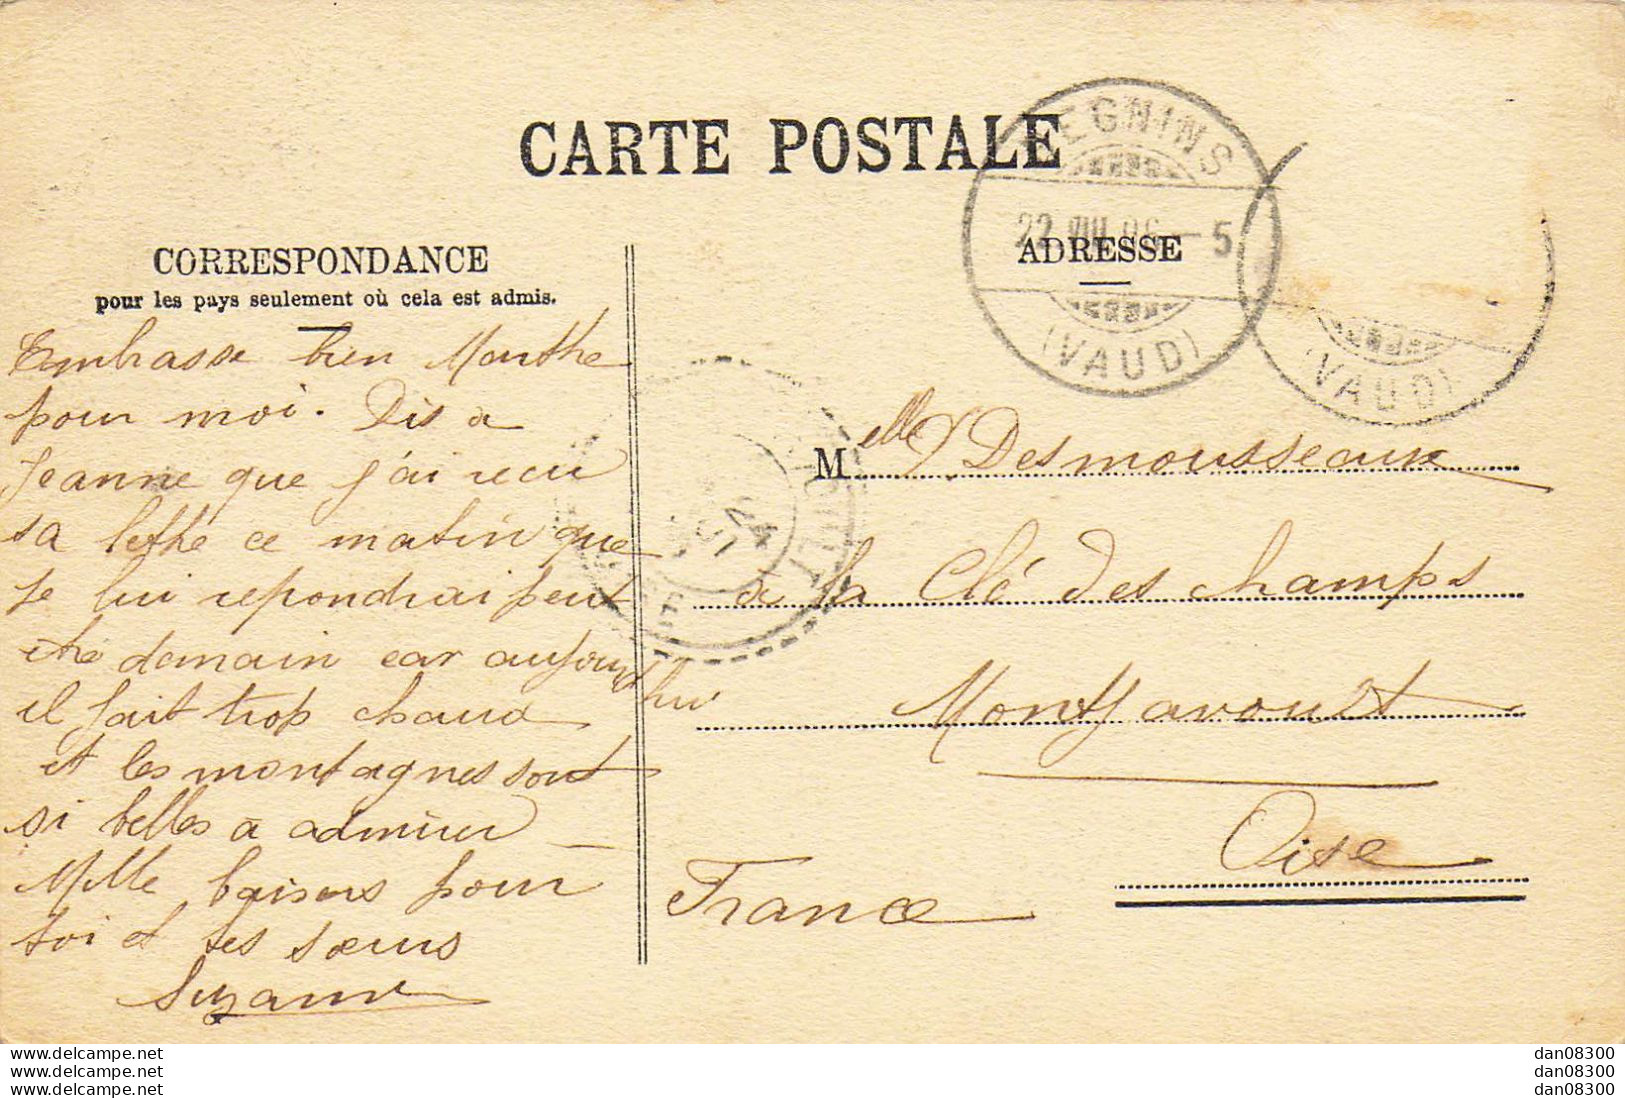 CARTE POSTALE
CORRESPONDANCE
pour les pays seulement où cela est admis.
ADRESSE
BEGNINS
22 VIII 06 – 5
(VAUD)
(VAUD)
Embrasse bien Marthe
pour moi. Dis à
Jeanne que j'ai reçu
sa lettre ce matin que
je lui repondrai peut
etre demain car aujourd'hui
il fait trop chaud
et les montagnes sont
si belles à admirer
Mille baisers pour
toi et tes sœurs
Suzanne
Melle Y Desmousseaux
à la Clé des champs
Montjavoult
Oise
France
www.delcampe.net
www.delcampe.net
www.delcampe.net
dan08300
dan08300
dan08300